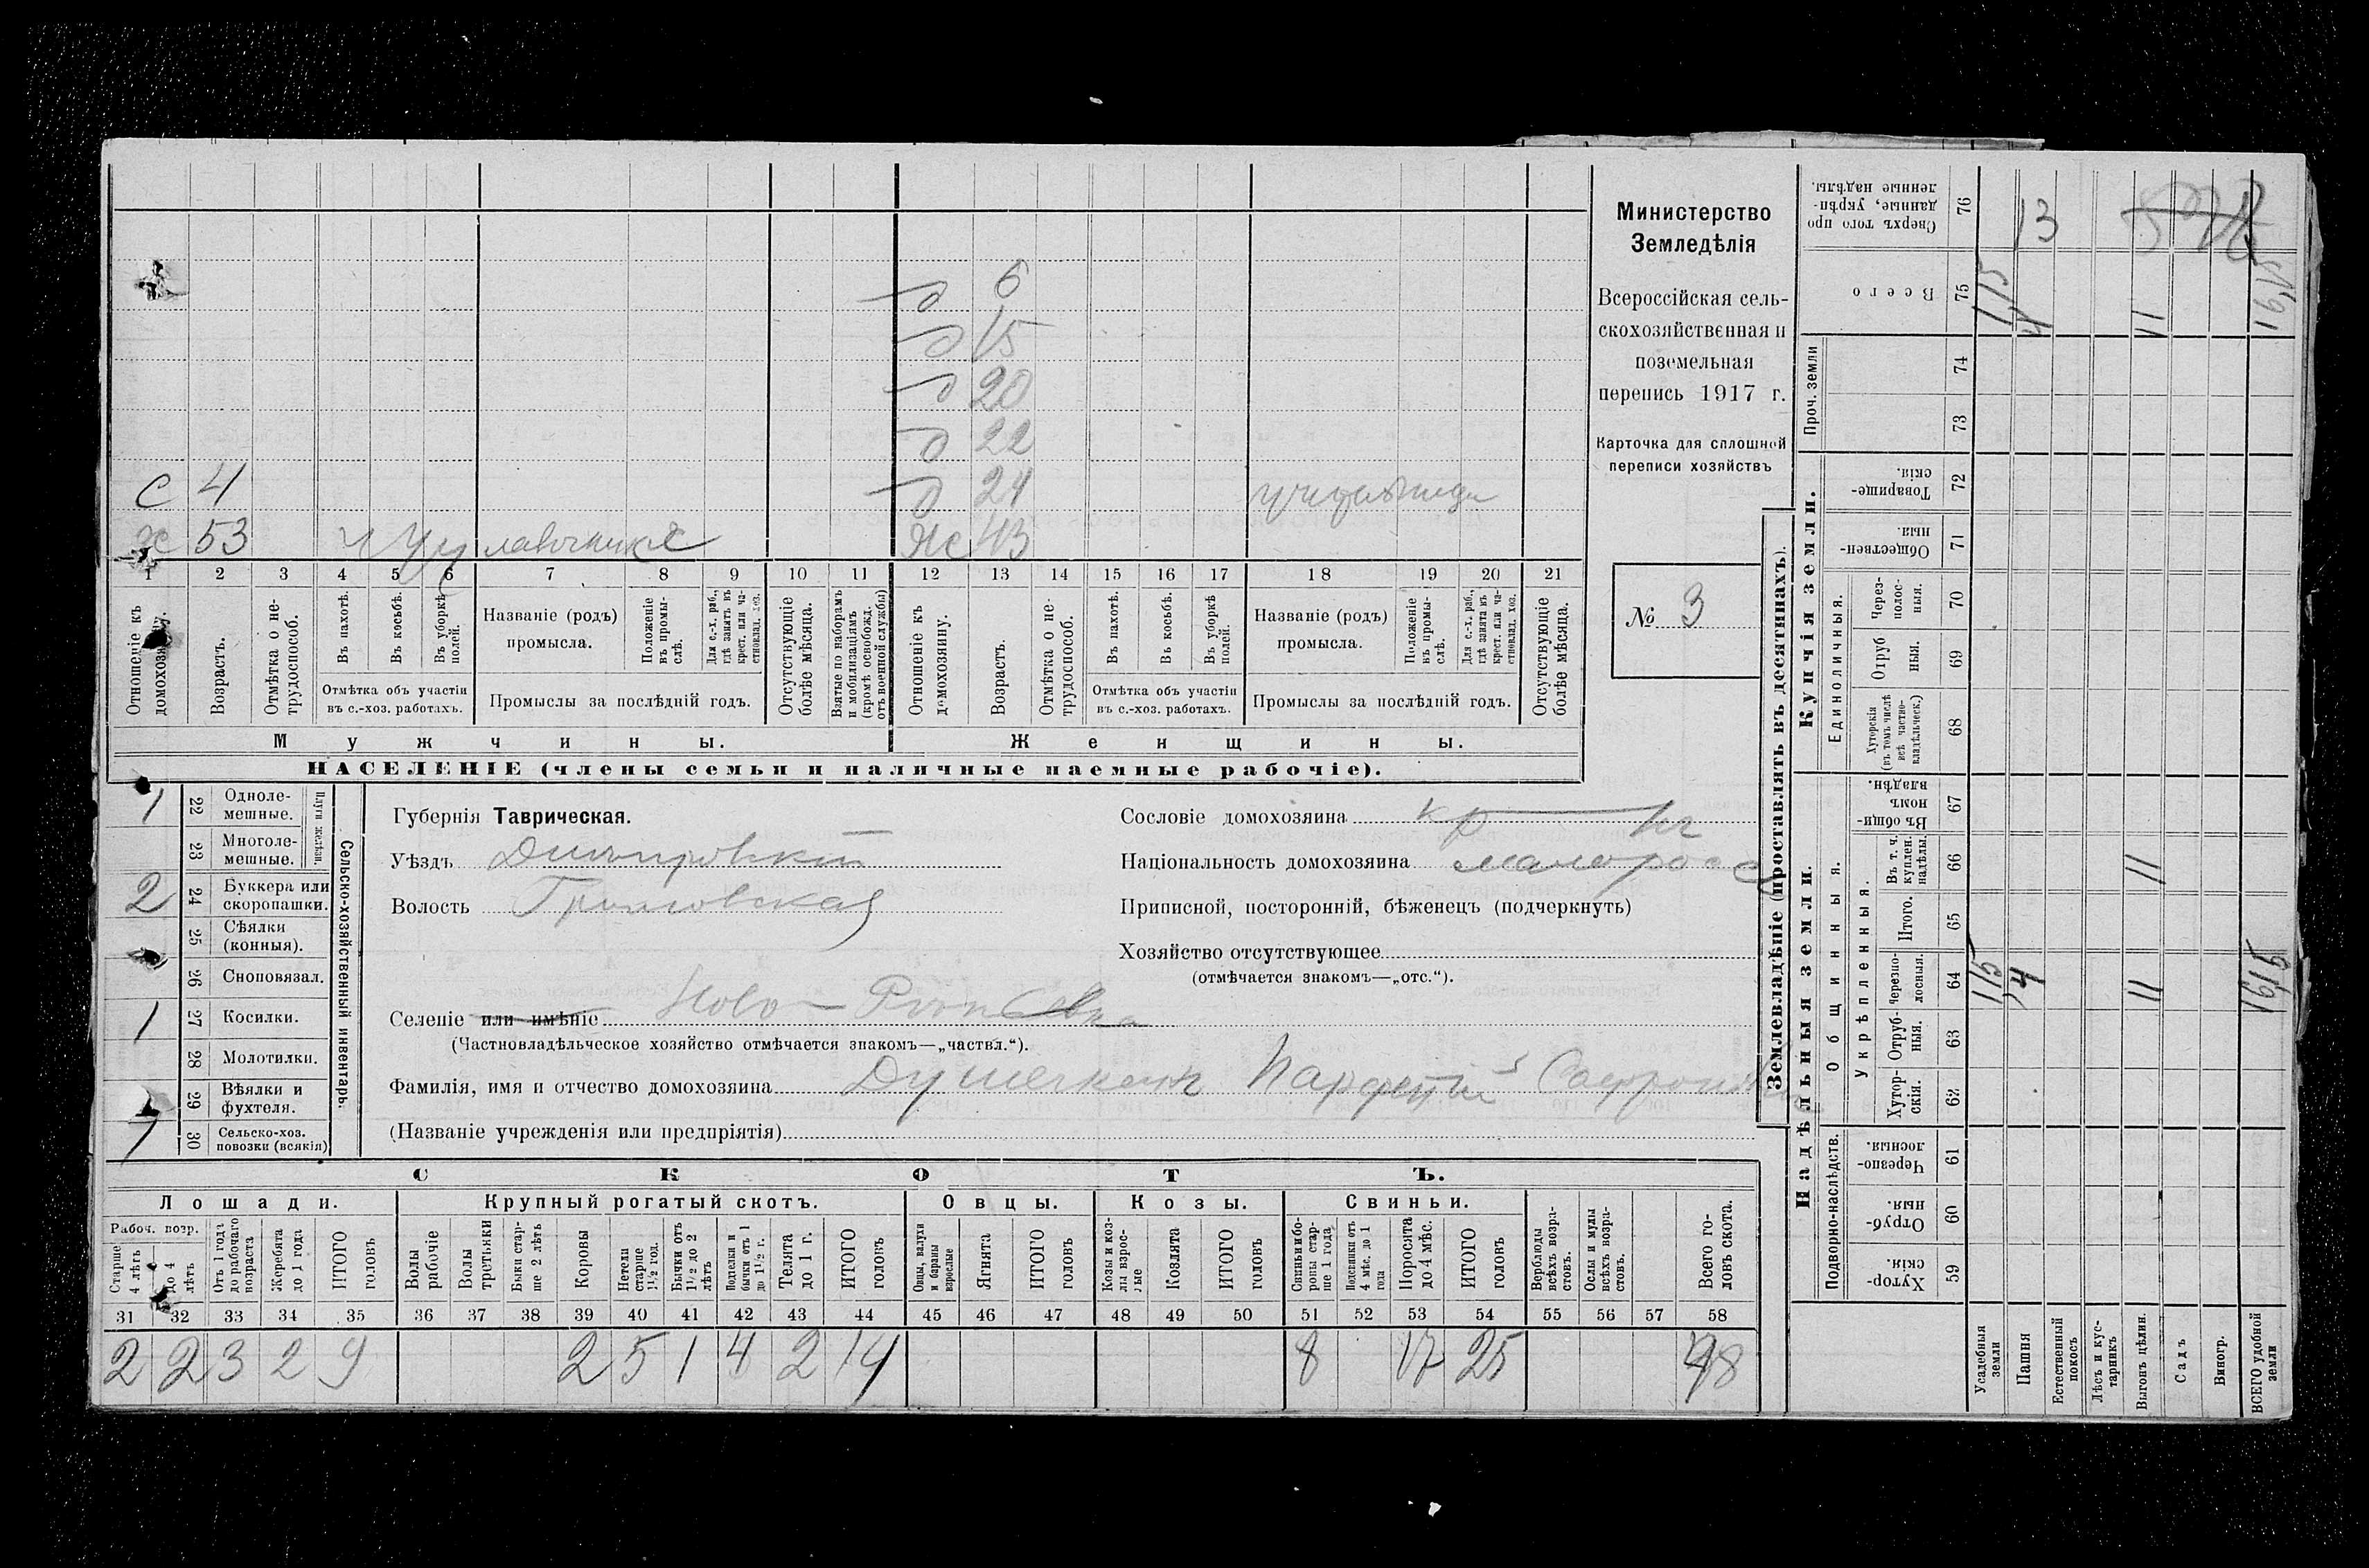 Министерство
Земледѣлія
Всероссійская сель-
скохозяйственная и
поземельная
перепись 1917 г.
Карточка для сплошной
переписи хозяйствъ
№ 3
д 6
д 15
д 20
д 22
с 4 д 24
х 53 лавочникъ Ж 43
1 2 3 4 5 6 7 8 9 10 11 12 13 14 15 16 17 18 19 20 21
Отношеніе къ домохозяину.
Возрастъ.
Отмѣтка о не-трудоспособ.
Въ пахотѣ.
Въ косьбѣ.
Въ уборкѣ полей.
Отмѣтка объ участіи
въ с.-хоз. работахъ.
Названіе (родъ)
промысла.
Положеніе въ промы-слѣ.
Для с.-х. раб., гдѣ занятъ въ крест. или ча-стновлад. хоз.
Промыслы за послѣдній годъ.
Отсутствующіе болѣе мѣсяца.
Взятые по наборамъ и мобилизаціямъ (кромѣ освобожд. отъ военной службы)
Отношеніе къ домохозяину.
Возрастъ.
Отмѣтка о не-трудоспособ.
Въ пахотѣ.
Въ косьбѣ.
Въ уборкѣ полей.
Отмѣтка объ участіи
въ с.-хоз. работахъ.
Названіе (родъ)
промысла.
Положеніе въ промы-слѣ.
Для с.-х. раб., гдѣ занята въ крест. или ча-стновлад. хоз.
Промыслы за послѣдній годъ.
Отсутствующіе болѣе мѣсяца.
Мужчины. Женщины.
НАСЕЛЕНІЕ (члены семьи и наличные наемные рабочіе).
Сельско-хозяйственный инвентарь.
Плуги желѣзн.
1 22 Одноле-мешные.
23 Многоле-мешные.
2 24 Буккера или скоропашки.
25 Сѣялки (конныя).
26 Сноповязал.
1 27 Косилки.
28 Молотилки.
1 29 Вѣялки и фухтеля.
1 30 Сельско-хоз. повозки (всякія)
Губернія Таврическая.
Уѣздъ Днѣпровскій
Волость
Селеніе или имѣніе Ново-
(Частновладѣльческое хозяйство отмѣчается знакомъ—„частвл.“).
Фамилія, имя и отчество домохозяина Парфентій
(Названіе учрежденія или предпріятія)
Сословіе домохозяина кр-нъ
Національность домохозяина малоросс
Приписной, посторонній, бѣженецъ (подчеркнуть)
Хозяйство отсутствующее
(отмѣчается знакомъ—„отс.“).
СКОТЪ.
Лошади. Крупный рогатый скотъ. Овцы. Козы. Свиньи.
Рабоч. возр.
Старше 4 лѣтъ
До 4 лѣтъ
Отъ 1 года до рабочаго возраста
Жеребята до 1 года
ИТОГО головъ
Волы рабочіе
Волы третьяки
Быки стар-ше 2 лѣтъ
Коровы
Нетели старше 1½ год.
Бычки отъ 1½ до 2 лѣтъ
Подтелки и бычки отъ 1 до 1½ г.
Телята до 1 г.
ИТОГО головъ
Овцы, валухи и бараны взрослые
Ягнята
ИТОГО головъ
Козы и коз-лы взрос-лые
Козлята
ИТОГО головъ
Свиньи и бо-ровы стар-ше 1 года
Подсвинки отъ 4 мѣс. до 1 года
Поросята до 4 мѣс.
ИТОГО головъ
Верблюды всѣхъ возра-стовъ.
Ослы и мулы всѣхъ возра-стовъ.
Всего го-ловъ скота.
31 32 33 34 35 36 37 38 39 40 41 42 43 44 45 46 47 48 49 50 51 52 53 54 55 56 57 58
2 2 3 2 9 2 5 1 4 2 14 8 17 25 48
Землевладѣніе (проставлять въ десятинахъ).
Купчія земли.
Надѣльныя земли.
Проч. земли
Единоличныя.
Общинныя.
Укрѣпленныя.
Подворно-наслѣдств.
76 Сверхъ того про данные, укрѣп-ленные надѣлы. 13
75 Всего
74
73
72 Товарище-скія.
71 Обществен-ныя.
70 Через-полос-ныя.
69 Отруб ныя.
68 Хуторскія (въ томъ числѣ всѣ частно-владѣльческ.)
67 Въ общин-номъ владѣн.
66 Въ т. ч. куплен. надѣлы.
65 Итого.
64 Черезпо-лосныя.
63 Отруб-ныя.
62 Хутор-скія.
61 Черезпо-лосныя.
60 Отруб-ныя.
59 Хутор-скія.
Усадебныя земли
Пашня
Естественный покосъ
Лѣсъ и кус-тарникъ
Выгонъ цѣлин.
Садъ
Виногр.
ВСЕГО удобной земли